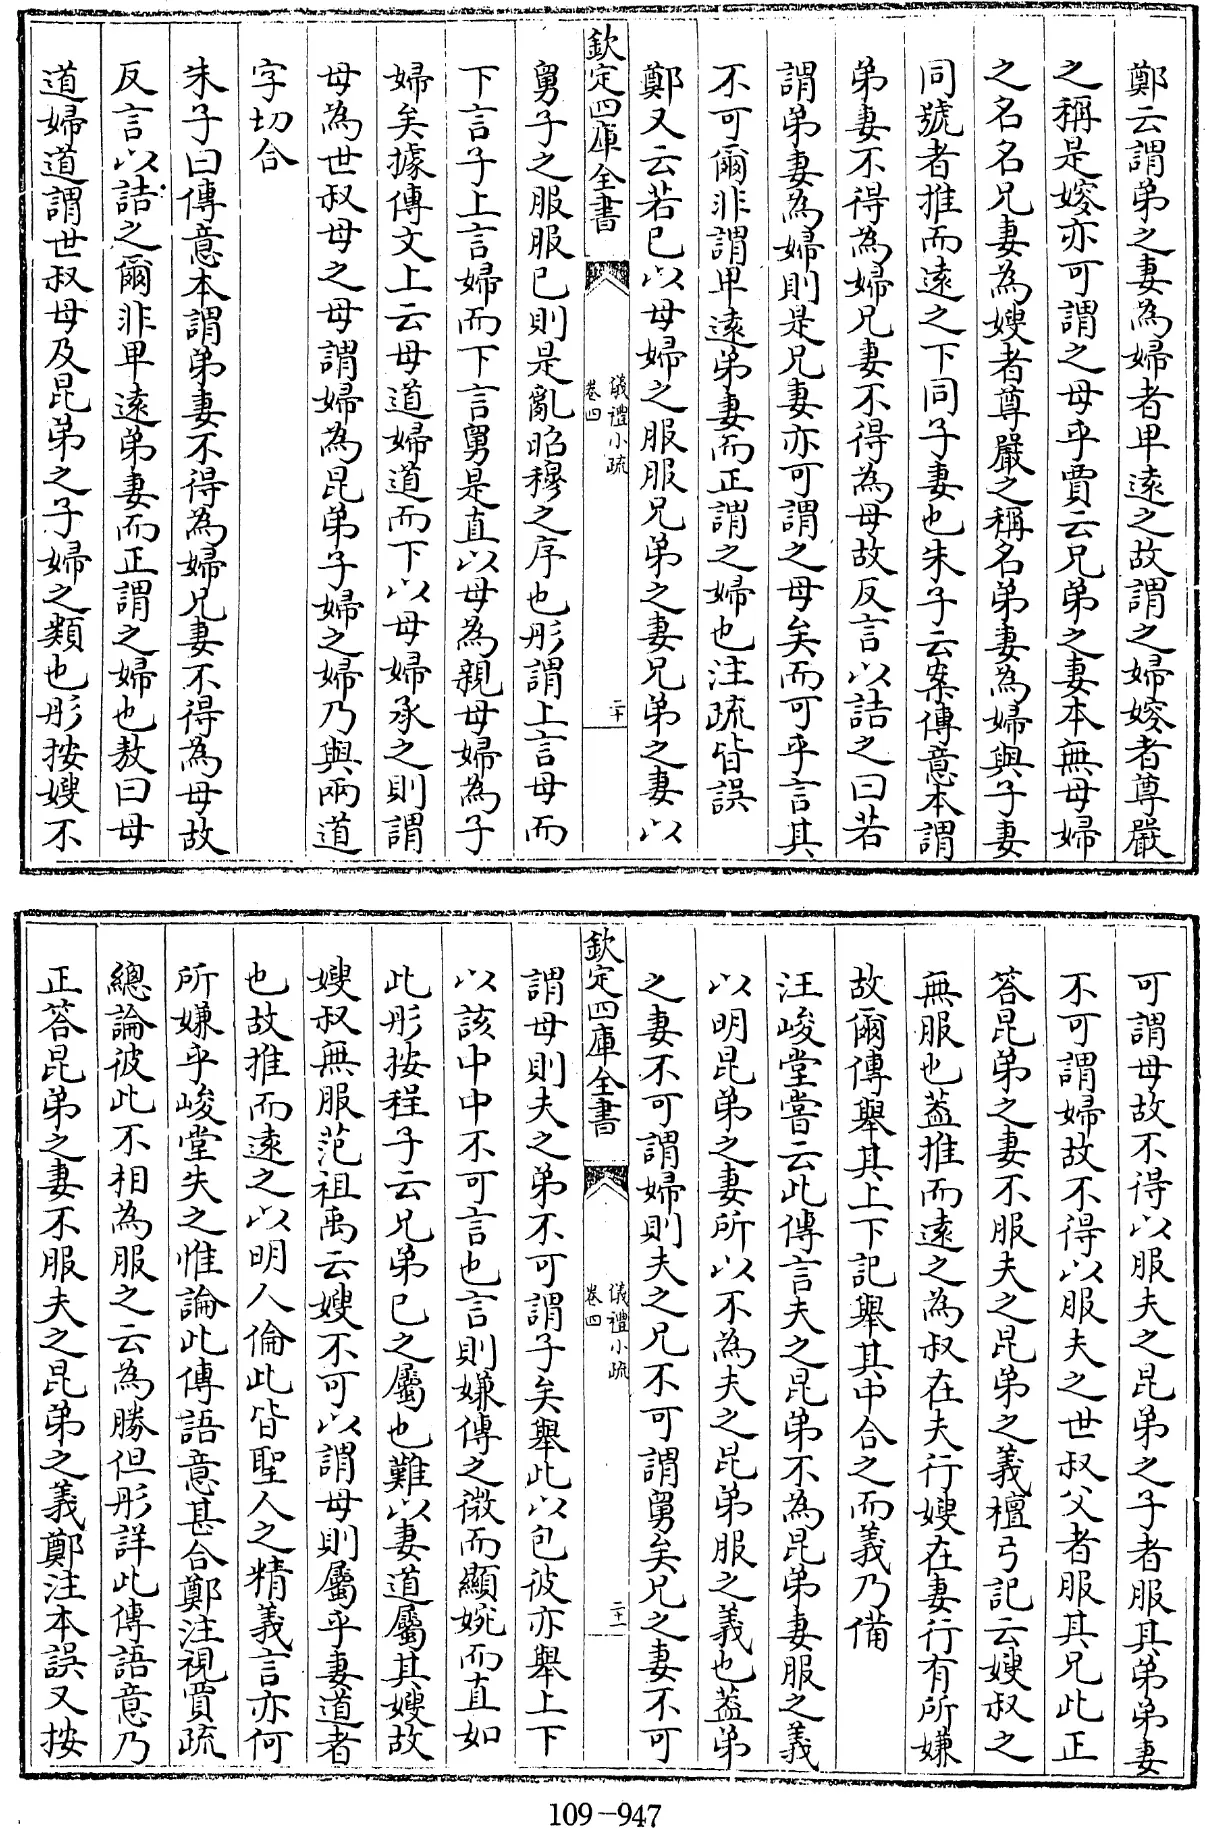 鄭云謂弟之妻為婦者卑遠之故謂之婦嫂者尊嚴
之稱是嫂亦可謂之母乎賈云兄弟之妻本無母婦
之名名兄妻為嫂者尊嚴之稱名弟妻為婦與子妻
同號者推而遠之下同子妻也朱子云案傳意本謂
弟妻不得為婦兄妻不得為母故反言以詰之曰若
謂弟妻為婦則是兄妻亦可謂之母矣而可乎言其
不可爾非謂卑遠弟妻而正謂之婦也注疏皆誤
鄭又云若己以母婦之服服兄弟之妻兄弟之妻以
欽定四庫全書
儀禮小疏
卷四
二十
舅子之服服已則是亂昭穆之序也彤謂上言母而
下言子上言婦而下言舅是直以母為親母婦為子
婦矣據傳文上云母道婦道而下以母婦承之則謂
母為世叔母之母謂婦為昆弟子婦之婦乃與兩道
字切合
朱子曰傳意本謂弟妻不得為婦兄妻不得為母故
反言以詰之爾非卑遠弟妻而正謂之婦也敖曰母
道婦道謂世叔母及昆弟之子婦之類也彤按嫂不
可謂母故不得以服夫之昆弟之子者服其弟弟妻
不可謂婦故不得以服夫之世叔父者服其兄此正
答昆弟之妻不服夫之昆弟之義檀弓記云嫂叔之
無服也蓋推而遠之為叔在夫行嫂在妻行有所嫌
故爾傳舉其上下記舉其中合之而義乃備
汪峻堂嘗云此傳言夫之昆弟不為昆弟妻服之義
以明昆弟之妻所以不為夫之昆弟服之義也蓋弟
之妻不可謂婦則夫之兄不可謂舅矣兄之妻不可
欽定四庫全書
儀禮小疏
卷四
二十一
謂母則夫之弟不可謂子矣舉此以包彼亦舉上下
以該中中不可言也言則嫌傳之微而顯婉而直如
此彤按程子云兄弟已之屬也難以妻道屬其嫂故
嫂叔無服范祖禹云嫂不可以謂母則屬乎妻道者
也故推而遠之以明人倫此皆聖人之精義言亦何
所嫌乎峻堂失之惟論此傳語意甚合鄭注視賈疏
總論彼此不相為服之云為勝但彤詳此傳語意乃
正答昆弟之妻不服夫之昆弟之義鄭注本誤又按
109-947